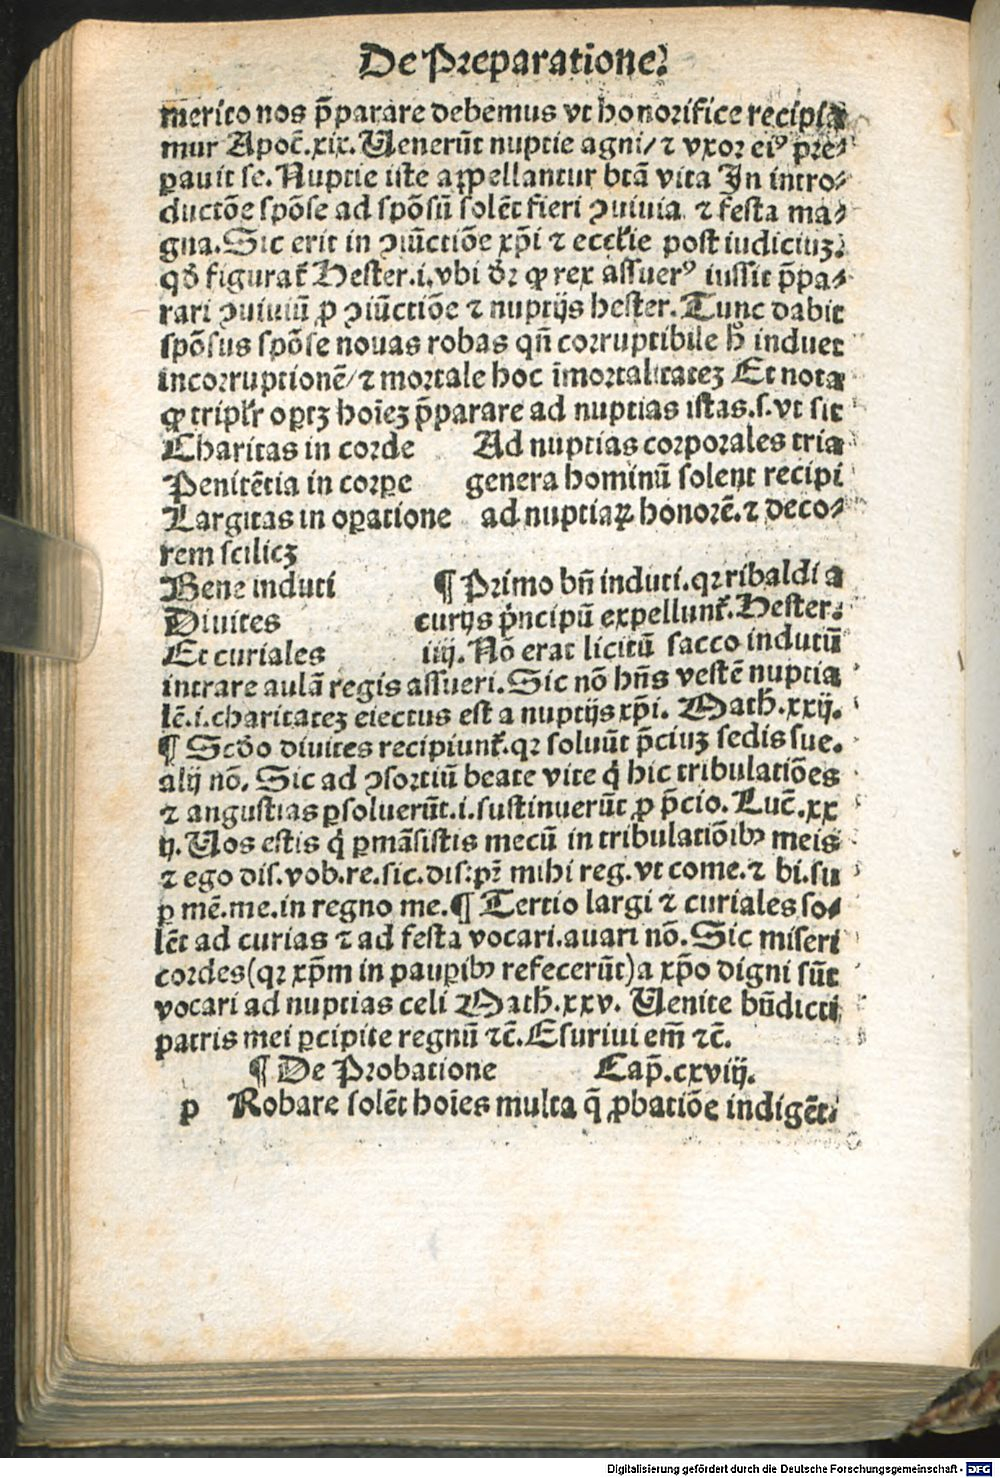 De Preparatione.
merito nos p̄parare debemus vt honorifice recipia
mur Apoc̄.xix. Venerūt nuptie agni/ ⁊ vxor eiꝰ pre⸗
pauit se. Nuptie iste appellantur btā vita In intro⸗
ductōe spōse ad spōsū solēt fieri ꝯuiuia ⁊ festa ma⸗
gna. Sic erit in ꝯiūctiōe xp̄i ⁊ eccl'ie post iudiciuꝫ.
qd̄ figurat᷑ Hester.i. vbi dr̄ ꝙ rex assuerꝰ iussit p̄pa⸗
rari ꝯuiuiū ꝑ ꝯiūctiōe ⁊ nuptijs hester. Tunc dabit
spōsus spōse nouas robas qn̄ corruptibile h̄ induet
incorruptionē/ ⁊ mortale hoc īmortalitateꝫ Et nota
ꝙ tripl'r oportꝫ hoīeꝫ p̄parare ad nuptias istas.s. vt sit
Charitas in corde Ad nuptias corporales tria
Penitētia in corpe genera hominū solent recipi
Largitas in oꝑatione ad nuptiaꝝ honorē. ⁊ deco⸗
rem scilicꝫ
Bene induti ¶ Primo bn̄ induti. qꝛ ribaldi a
Diuites curijs p̄ncipū expellunt᷑. Hester.
Et curiales iiij. Nō erat licitū sacco indutū
intrare aulā regis assueri. Sic nō hn̄s vestē nuptia
lē.i. charitateꝫ eiectus est a nuptijs xp̄i. Math̄.xxij.
¶ Scd̄o diuites recipiunt᷑. qꝛ soluūt p̄ciuꝫ sedis sue.
alij nō. Sic ad ꝯsortiū beate vite q̇ hic tribulatiōes
⁊ angustias ꝑsoluerūt.i. sustinuerūt ꝓ p̄cio. Luc̄.xx
ij. Vos estis q̇ ꝑmāsistis mecū in tribulatiōibꝰ meis
⁊ ego dis. vob. re. sic. dis: pr̄ mihi reg. vt come. ⁊ bi. su
ꝑ mē. me. in regno me. ¶ Tertio largi ⁊ curiales so⸗
lēt ad curias ⁊ ad festa vocari. auari nō. Sic miseri
cordes (qꝛ xp̄m in pauꝑibꝰ refecerūt) a xp̄o digni sūt
vocari ad nuptias celi Math̄.xxv. Venite bn̄dicti
patris mei ꝑcipite regnū ⁊c̄. Esuriui em̄ ⁊c̄.
¶ De Probatione Cap̄.cxviij.
p Robare solēt hoīes multa q̄ ꝓbatiōe indigēt.
Digitalisierung gefördert durch die Deutsche Forschungsgemeinschaft - DFG